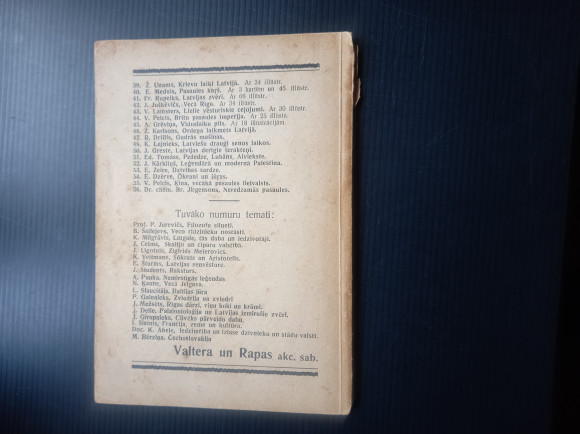 39. Ž. Unams, Krievu laiki Latvijā. Ar 24 illüstr.
40. E. Mednis, Pasaules kaŗš. Ar 3 kartēm un 45 illüstr.
41. Fr. Rupeiks, Latvijas zvēri. Ar 66 illüstr.
42. J. Juškēvičs, Vecā Rīga. Ar 34 illüstr.
43. V. Lamsters, Lielie vēsturiskie ceļojumi. Ar 30 illüstr.
44. V. Pelcis, Britu pasaules imperija. Ar 25 illüstr.
45. A. Grēviņa, Viduslaiku pils. Ar 18 illüstrācijām.
46. Z. Karlsons, Ordeņa laikmets Latvijā.
47. R. Drillis, Gudrās mašīnas.
48. K. Lejnieks, Latviešu draugi senos laikos.
50. J. Greste, Latvijas derīgie izrakteņi.
51. Ed. Tomāss, Pededze, Lubāns, Aiviekste.
52. J. Kārkliņš, Leģendārā un modernā Palestīna.
53. E. Zeire, Dzīvības sardze.
54. E. Dzērve, Okeani un jūras.
55. V. Pelcis, Ķīna, vecākā pasaules lielvalsts.
56. Dr. chēm. Br. Jirgensons, Neredzamās pasaules.
Tuvāko numuru temati:
Prof. P. Jurevičs, Filozofu silueti.
R. Šnējers, Veco rīdzinieku nostāsti.
K. Milgrāvis, Latgale, tās daba un iedzīvotāji.
J. Celms, Skaitļu un ciparu valstībā.
J. Lignotnis, Zigfrīds Meierovics.
K. Veitmane, Sōkrats un Aristotelis.
E. Šturms, Latvijas senvēsture.
J. Students, Raksturs.
A. Punka, Nemirstīgās leģendas
N. Kaute, Vecā Jelgava.
L. Slaucītājs, Baltijas jūra
P. Galenieks, Zviedrija un zviedri
J. Mežsēts, Rīgas dārzi, viņu koki un krūmi.
J. Delle, Palaiontoloģija un Latvijas izmirušie zvēri.
J. Gregaļoks, Cilvēks pārveido dabu.
Doc. K. Ābele, Iedzimtība un izlase dzīvnieku un stādu valstī.
M. Bērziņa, Čechoslovakija
Valtera un Rapas akc. sab.